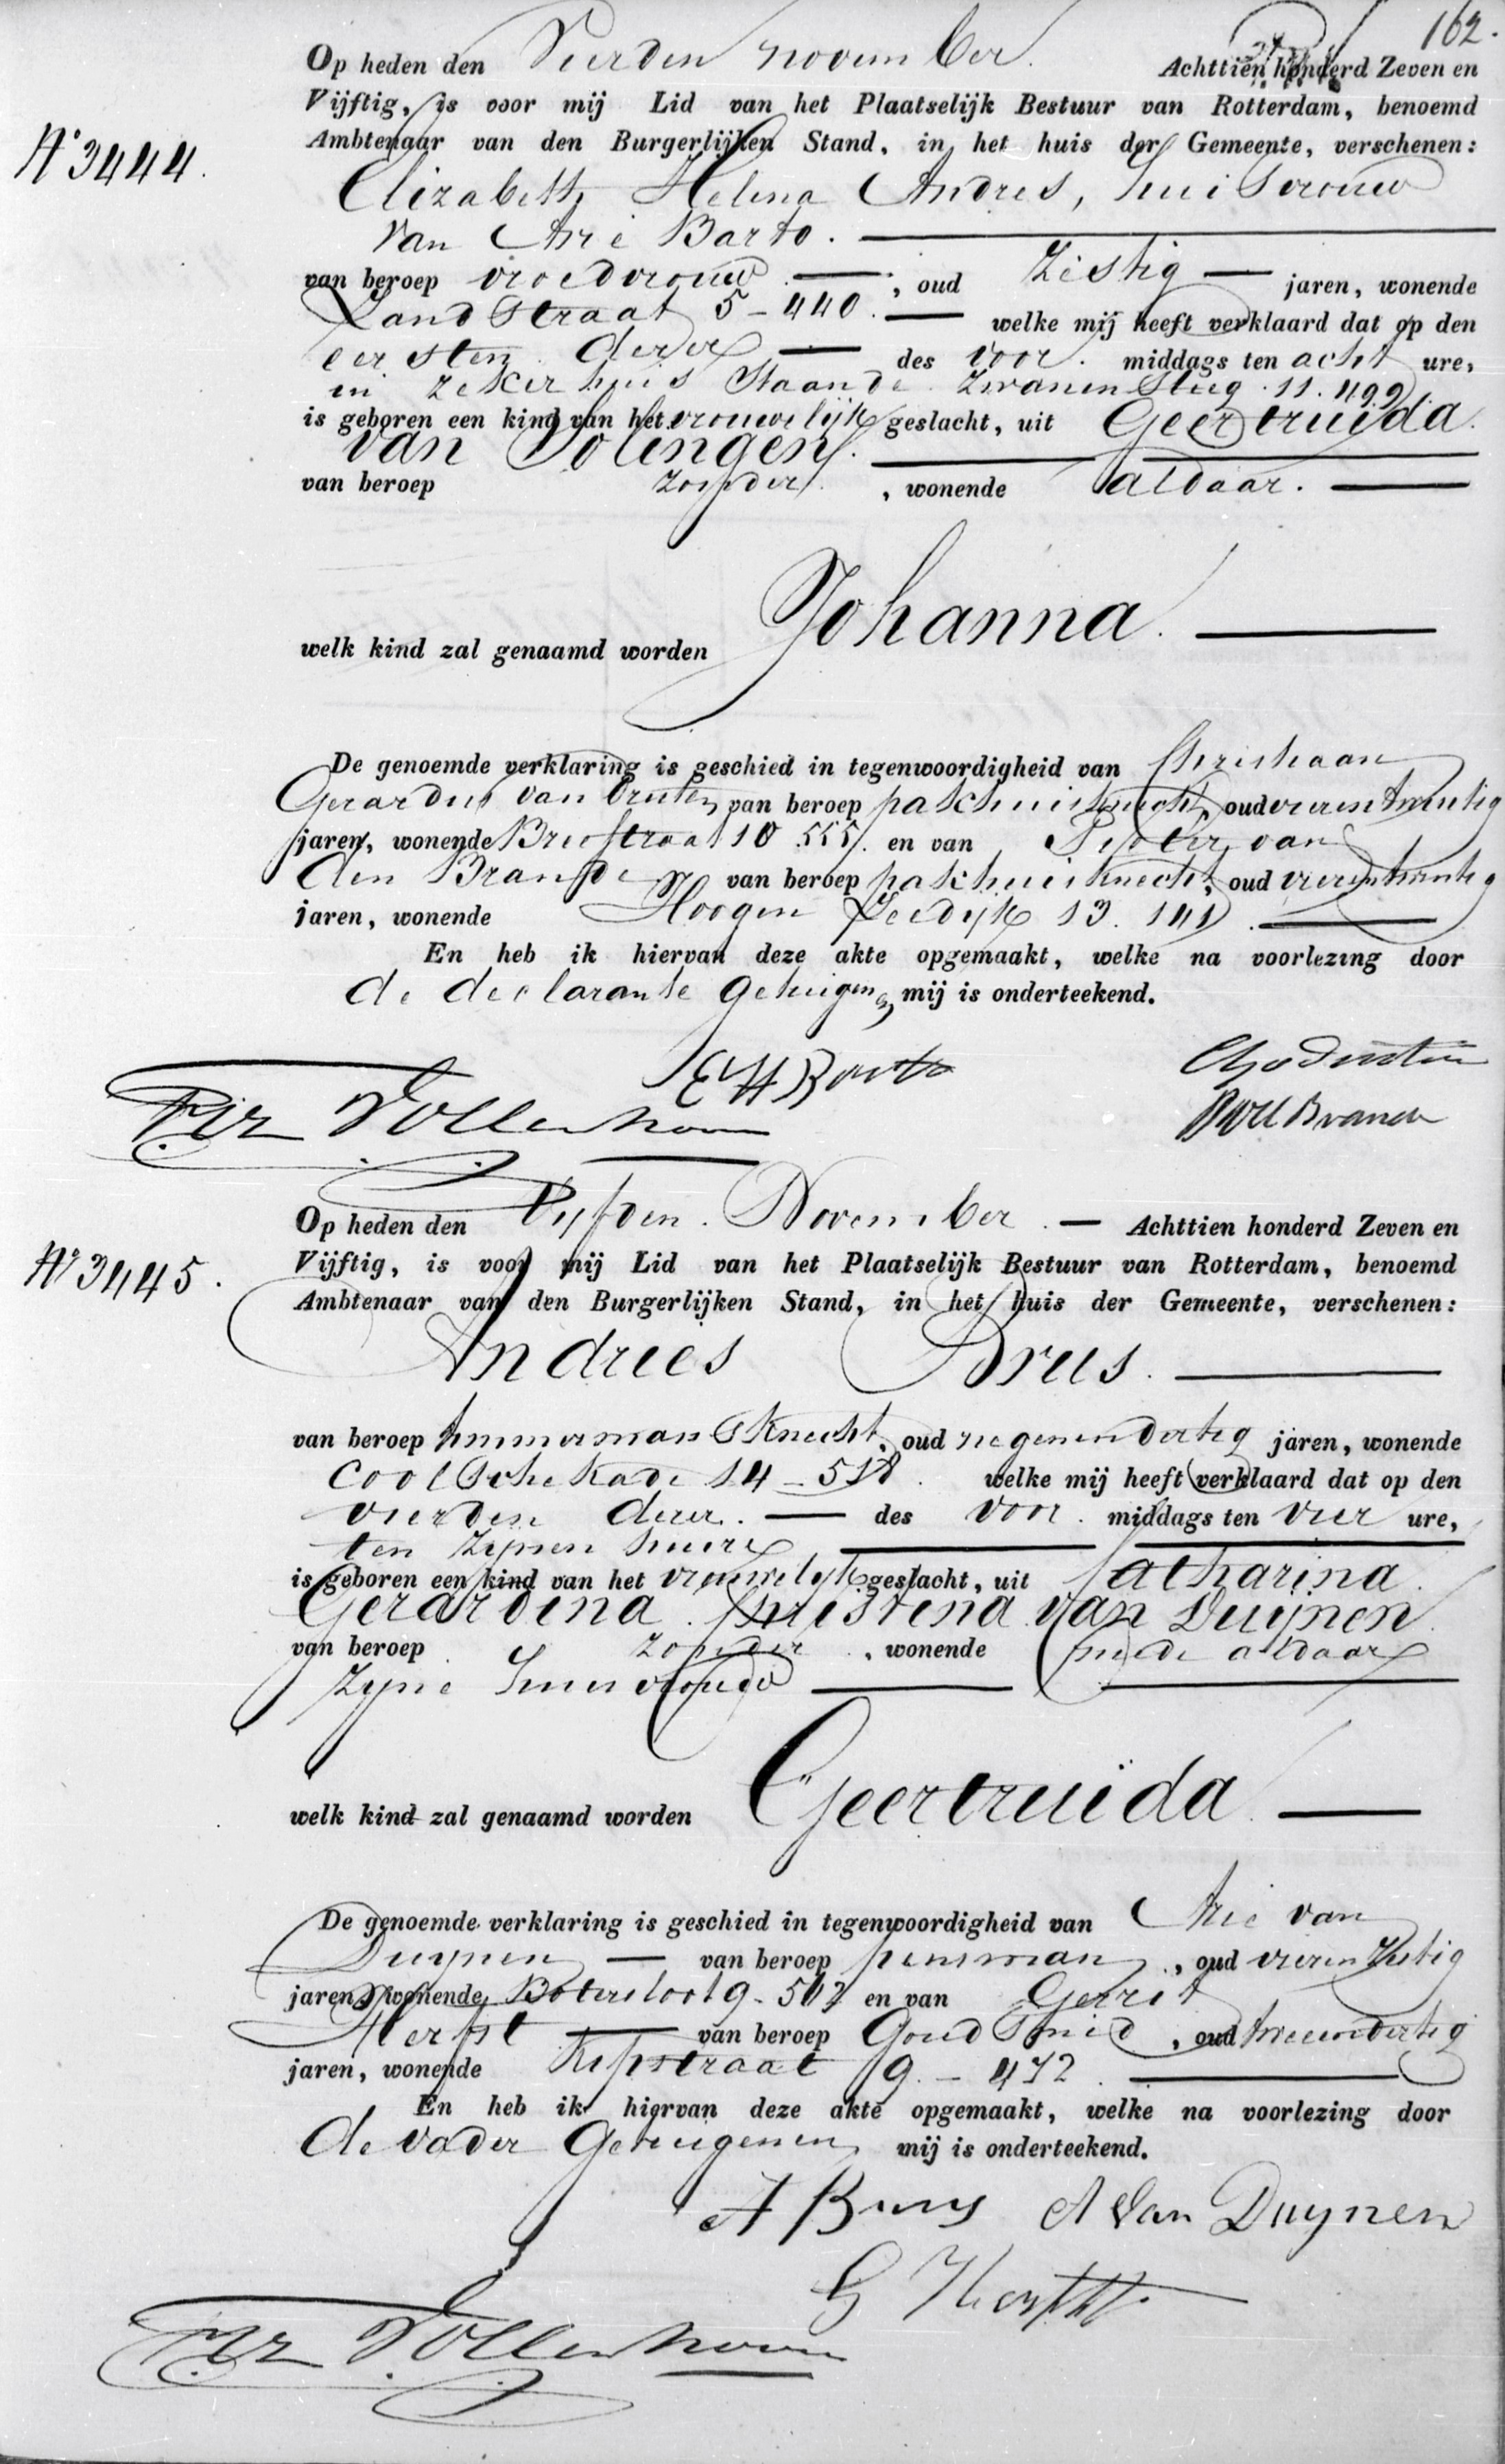 162.
Op heden den Vierden november. Achttien honderd Zeven en
Vijftig, is voor mij Lid van het Plaatselijk Bestuur van Rotterdam, benoemd
Ambtenaar van den Burgerlijken Stand, in het huis der Gemeente, verschenen:
N° 3444.
Elizabeth Helena Andres, huisvrouw
van Arie Barto.
van beroep vroedvrouw, oud Zestig jaren, wonende
Zandstraat 5-440. welke mij heeft verklaard dat op den
eersten dezer des voor middags ten acht ure,
in zeker huis staande Zwanensteeg 11.499
is geboren een kind van het vrouwelijk geslacht, uit Geertruida
van Solingen.
van beroep zonder, wonende aldaar.
welk kind zal genaamd worden Johanna.
De genoemde verklaring is geschied in tegenwoordigheid van Christiaan
Gerardus van Druten van beroep pakhuisknecht, oud vierentwintig
jaren, wonende Breestraat 10.555. en van Pieter van
den Brande van beroep pakhuisknecht, oud vierentwintig
jaren, wonende Hoogen Zeedijk 13.141.
En heb ik hiervan deze akte opgemaakt, welke na voorlezing door
de declarante getuigen en mij is onderteekend.
EH Barto
Vollenhoven
Op heden den Vijfden November. Achttien honderd Zeven en
N° 3445.
Vijftig, is voor mij Lid van het Plaatselijk Bestuur van Rotterdam, benoemd
Ambtenaar van den Burgerlijken Stand, in het huis der Gemeente, verschenen:
Andries
van beroep timmermansknecht, oud negenendertig jaren, wonende
Coolschekade 14-518. welke mij heeft verklaard dat op den
vierden dezer. des voor middags ten vier ure,
ten zijnen huize
is geboren een kind van het vrouwelijk geslacht, uit Catharina
Gerardina Christina van Duijnen
van beroep zonder, wonende mede aldaar
zijne huisvrouw
welk kind zal genaamd worden Geertruida
De genoemde verklaring is geschied in tegenwoordigheid van Arie van
Duijnen van beroep, oud vierenzestig
jaren, wonende Botersloot 9-507 en van Gerrit
Herfst van beroep Goudsmid, oud tweeendertig
jaren, wonende Kipstraat 9-472.
En heb ik hiervan deze akte opgemaakt, welke na voorlezing door
de vader Getuigen en mij is onderteekend.
A van Duynen
G Herfst
Vollenhoven